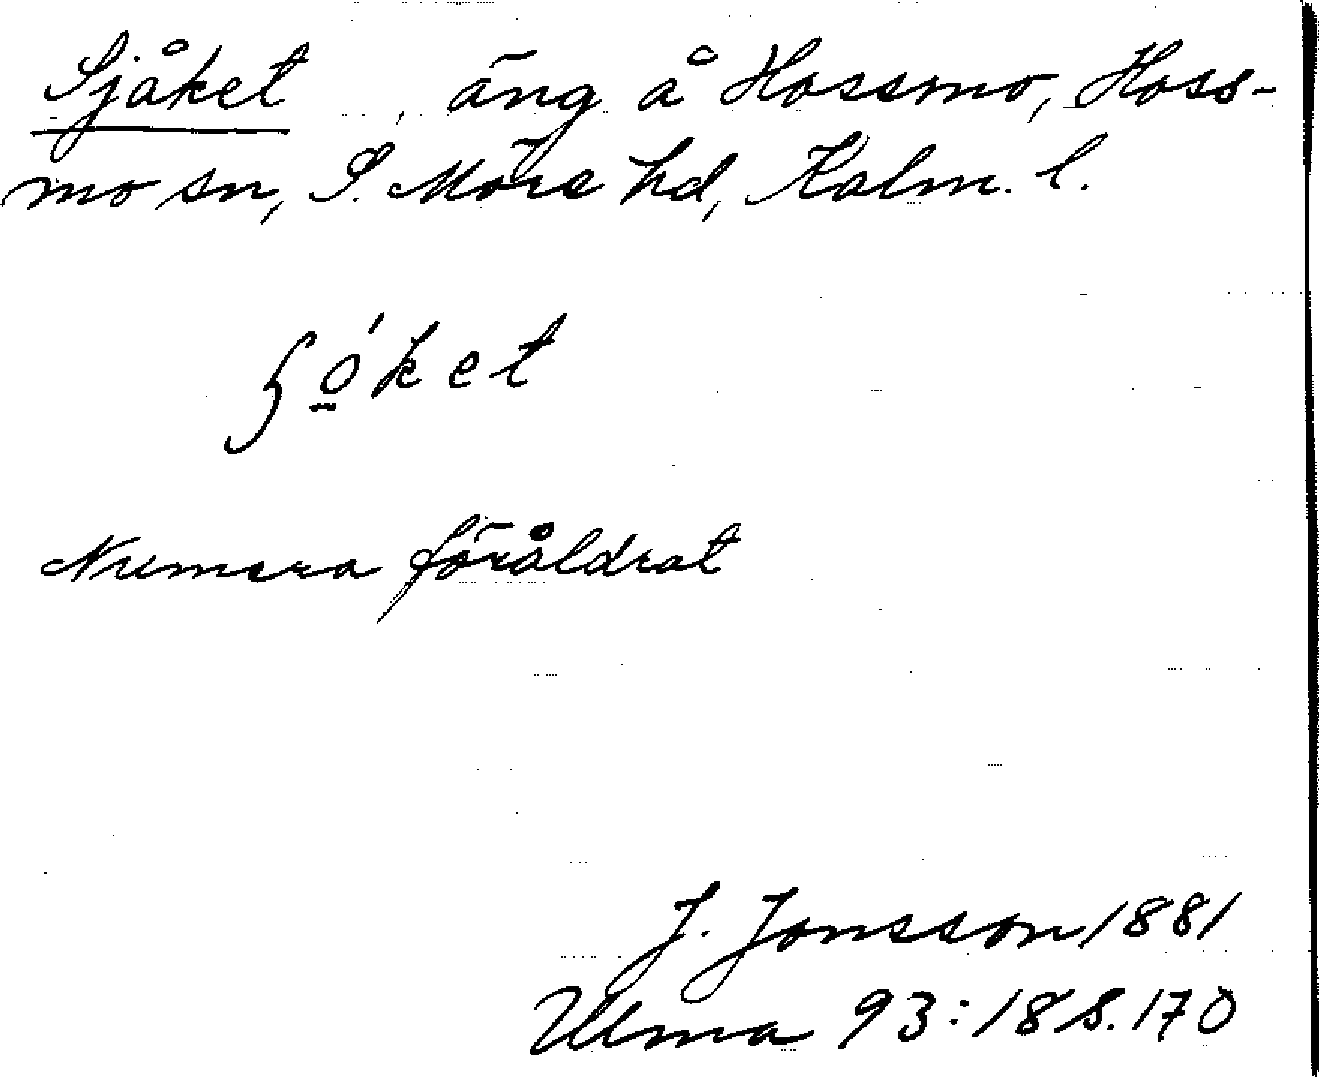 Sjåket, äng å Hossmo, Hoss-
mo sn, S. Möre hd, Kalm. l.
ʃó̲ket
Numera föråldrat
J. Jonsson 1881
Ulma 93:18 S. 170